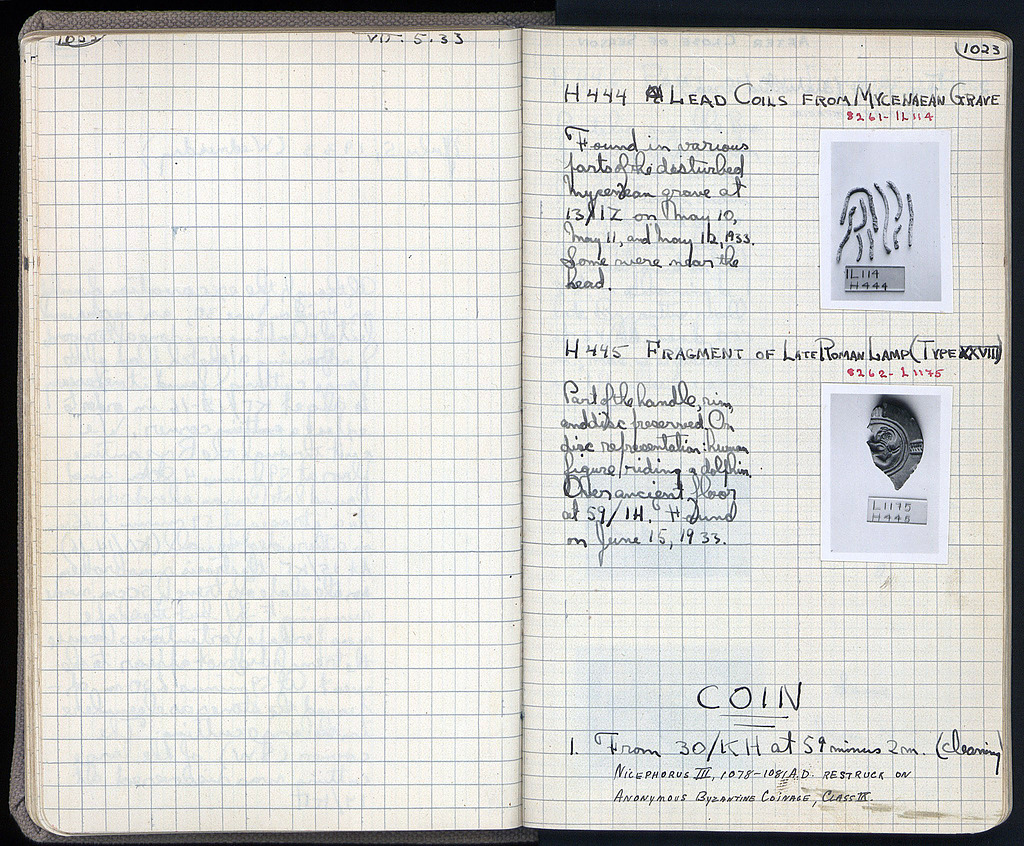 1022
VII. 5.33
1023
H 444 LEAD COILS FROM MYCENAEAN GRAVE
8261 - IL 114
Found in various
parts of the disturbed
Mycenaean grave at
13/IZ on May 10,
May 11, and May 12, 1933.
Some were near the
head.
IL 114
H 444
H 445 FRAGMENT OF LATE ROMAN LAMP (TYPE XXVIII)
8262 - L 1175
Part of the handle, rim,
and disc preserved. On
disc representation: human
figure riding a dolphin.
Over ancient floor
at 59/IH. Found
on June 15, 1933.
L 1175
H 445
COIN
1. From 30/KH at 59 minus 2m. (cleaning)
NICEPHORUS III, 1078-1081 A.D. RESTRUCK ON
ANONYMOUS BYZANTINE COINAGE, CLASS IX.